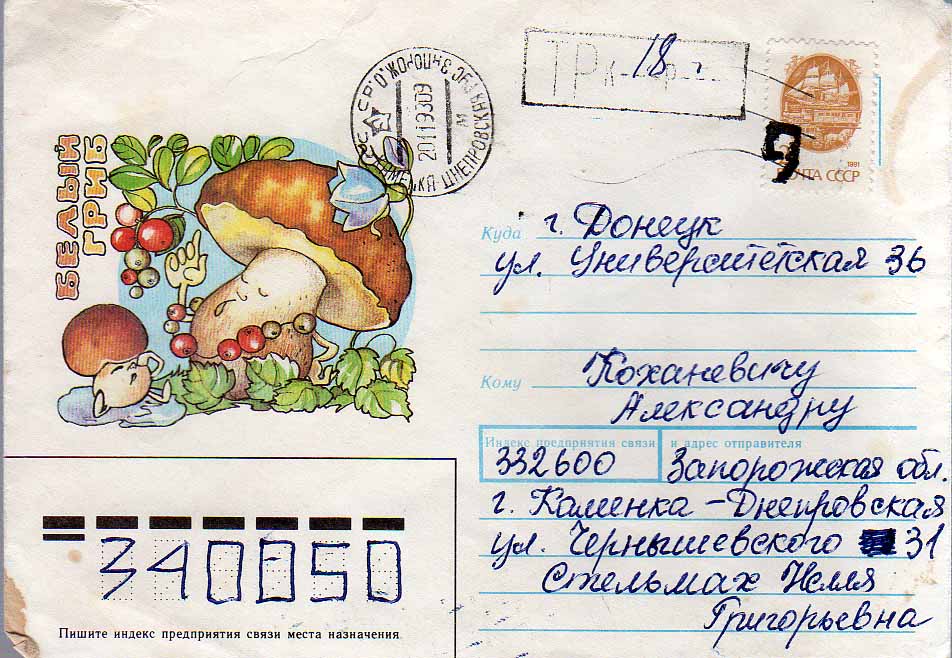 БЕЛЫЙ
ГРИБ
20119309
ТР 18
1991
ПОЧТА СССР
Куда г. Донецк
ул. Университетская 36
Кому Коханевичу
Александру
Индекс предприятия связи и адрес отправителя
332600 Запорожская обл.
г. Каменка-Днепровская
ул. Чернышевского 31
Стельмах Нелля
Григорьевна
340050
Пишите индекс предприятия связи места назначения